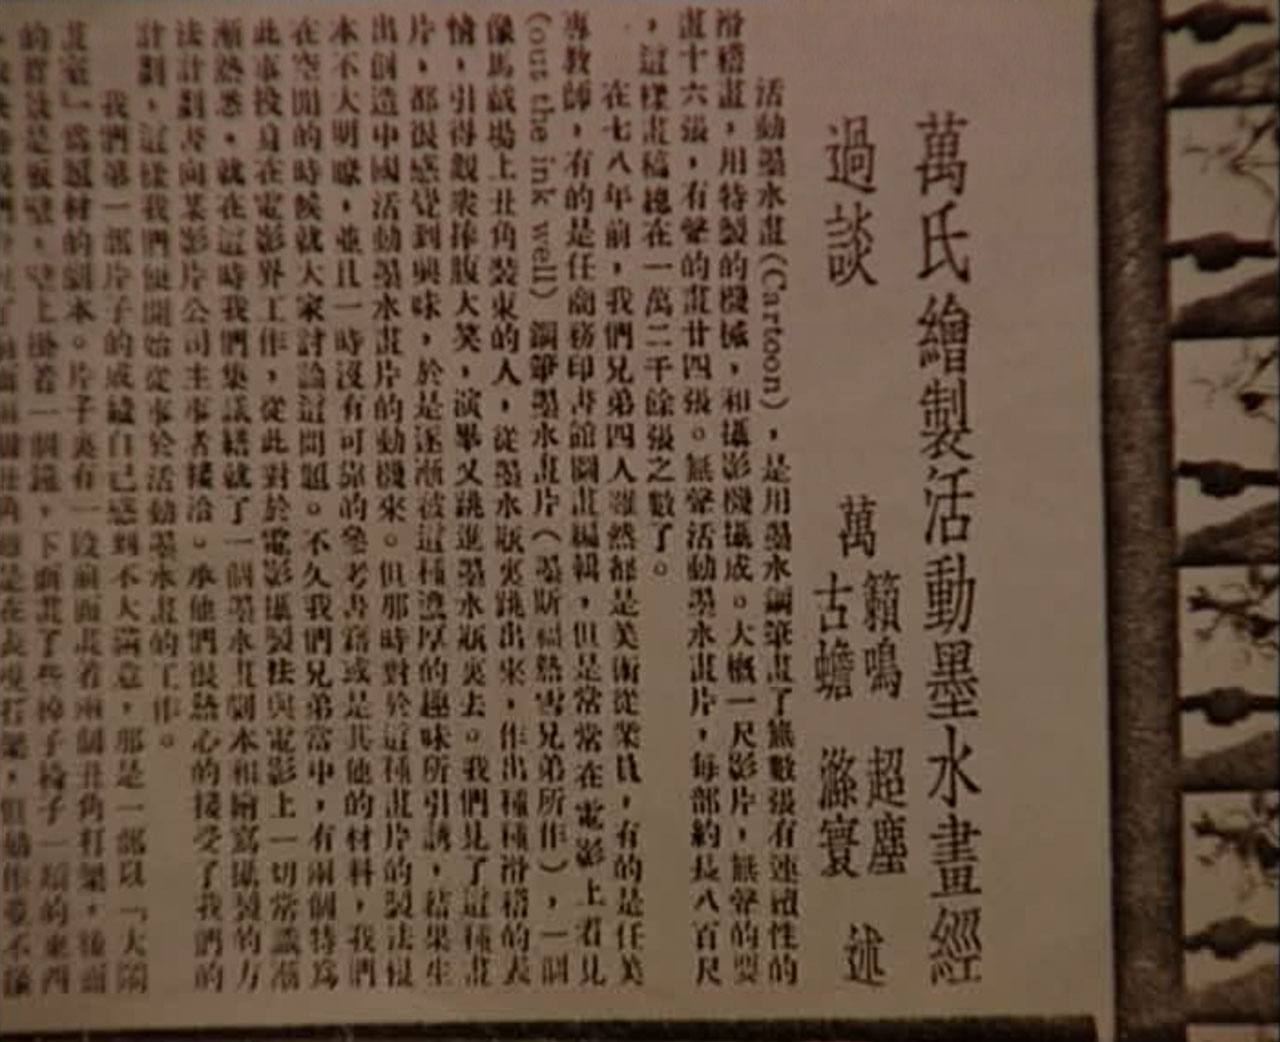 萬氏繪製活動墨水畫經
過談
萬籟鳴 超塵
古蟾 滌寰 述
活動墨水畫(Cartoon),是用墨水鋼筆畫了無數張有連續性的
滑稽畫,用特製的機械,和攝影機攝成。大概一尺影片,無聲的要
畫十六張,有聲的畫廿四張。無聲活動墨水畫片,每部約長八百尺
,這樣畫稿總在一萬二千餘張之數了。
在七八年前,我們兄弟四人雖然都是美術從業員,有的是任美
專教師,有的是任商務印書館圖畫編輯,但是常常在電影上看見
(out the ink well)鋼筆墨水畫片(墨斯福熱雪兄弟所作),一個
像馬戲場上丑角裝束的人,從墨水瓶裏跳出來,作出種種滑稽的表
情,引得觀衆捧腹大笑,演畢又跳進墨水瓶裏去。我們見了這種畫
片,都很感覺到興味,於是逐漸被這種濃厚的趣味所引誘,結果生
出個造中國活動墨水畫片的動機來。但那時對於這種畫片的製法很
本不大明瞭,並且一時沒有可靠的參考書籍或是其他的材料,我們
在空閒的時候就大家討論這問題。不久我們兄弟當中,有兩個特爲
此事投身在電影界工作,從此對於電影攝製法與電影上一切常識漸
漸熟悉,就在這時我們集議繕就了一個墨水畫劇本和繪寫攝製的方
法計劃書向某影片公司主事者接洽。承他們很熱心的接受了我們的
計劃,這樣我們便開始從事於活動墨水畫的工作。
我們第一部片子的成績自己感到不大滿意,那是一部以「大鬧
畫室」爲題材的劇本。片子裏有一段前面畫着兩個丑角打架,後面
的背景是板壁,壁上掛着一個鏡,下面畫了些棹子椅子一類的東西